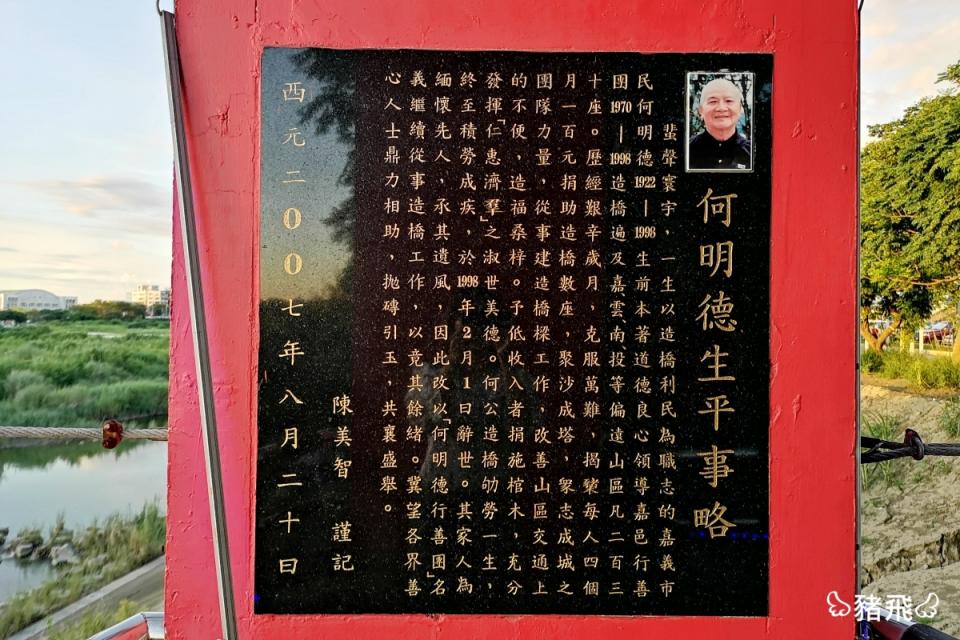 何明德生平事略
蜚聲寰宇，一生以造橋利民為職志的嘉義市
民何明德1922－1998生前本著道德良心領導嘉邑行善
團1970－1998造橋遍及嘉雲南投等偏遠山區凡二百三
十座。歷經艱辛歲月，克服萬難，揭櫫每人四個
月一百元捐助造橋數座，聚沙成塔，眾志成城之
團隊力量，從事建造橋樑工作，改善山區交通上
的不便，造福桑梓。予低收入者捐施棺木，充分
發揮「仁惠濟羣」之淑世美德。何公造橋劬勞一生，
終至積勞成疾，於1998年2月1日辭世。其家人為
緬懷先人，承其遺風，因此改以「何明德行善團」名
義繼續從事造橋工作，以竟其餘緒。冀望各界善
心人士鼎力相助，拋磚引玉，共襄盛舉。
陳美智　謹記
西元二00七年八月二十日
豬飛